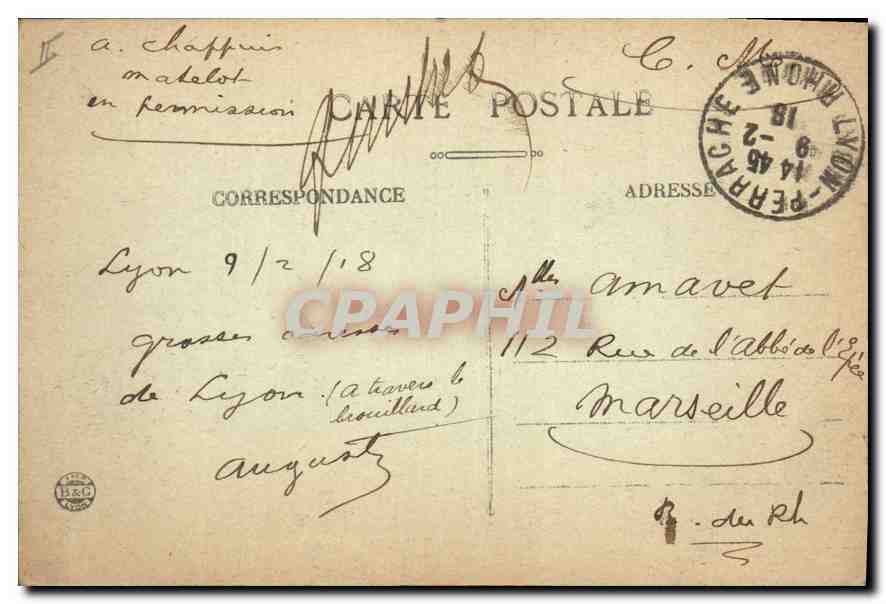 a. Chappuis
matelot
en permission
C. M.
CARTE POSTALE
CORRESPONDANCE
ADRESSE
LYON-PERRACHE RHONE
14 45
9 -2
18
Lyon 9/2/18
grosses caresses
de Lyon. (a travers le
brouillard)
August
Mlles Amavet
112 Rue de l'Abbé de l'Epée
Marseille
B. du Rh
B&G
LYON
CPAPHIL